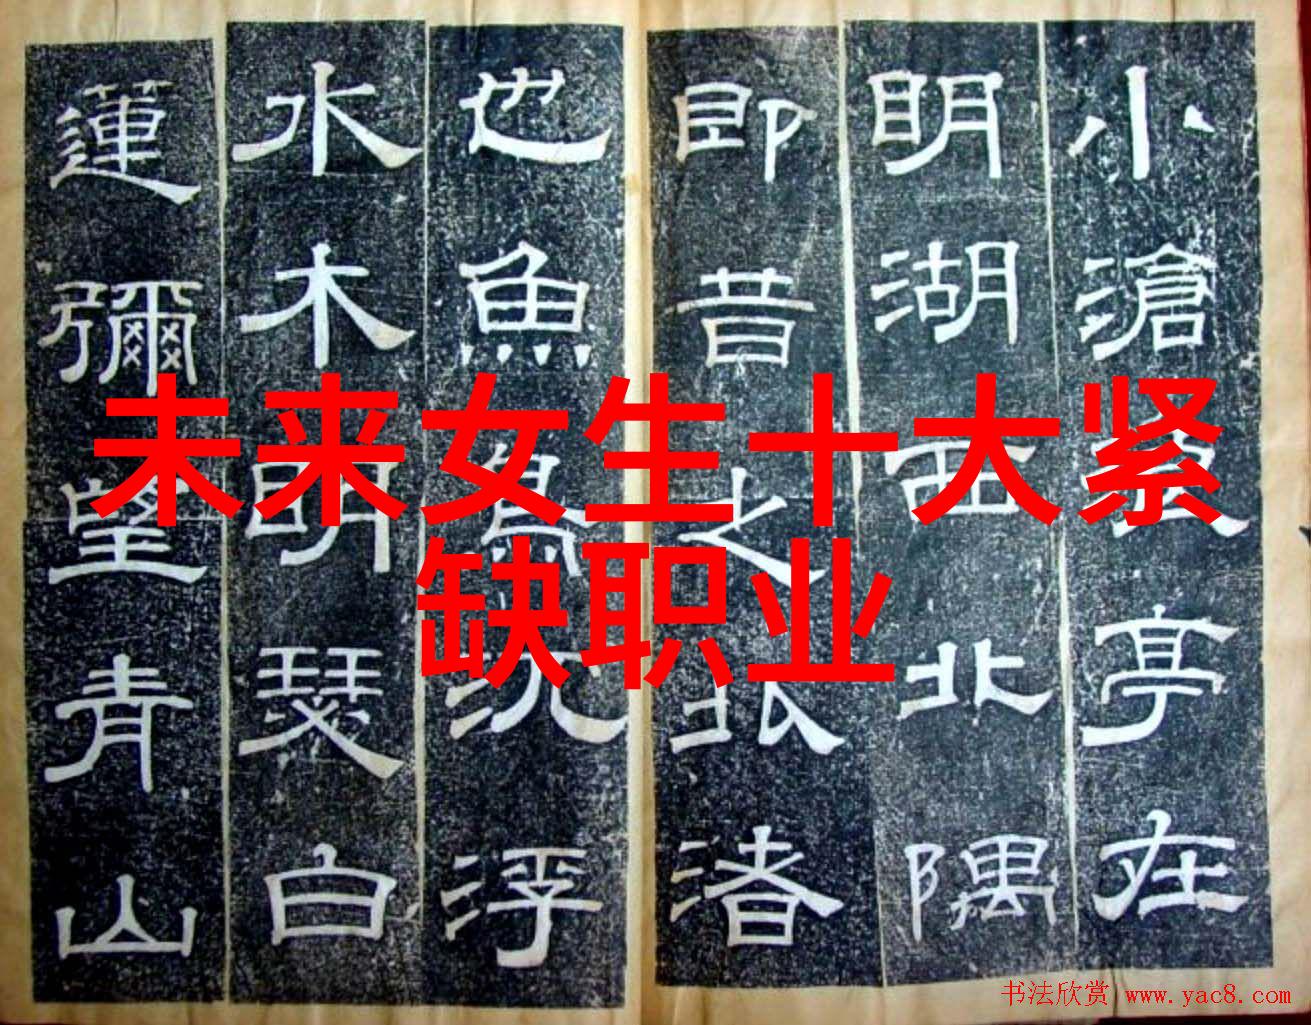 小滄浪亭在
明湖西北隅
即昔之北渚
也魚鳥沈浮
水木明瑟白
蓮彌望青山
未来女生十大紧
缺职业
书法欣赏 www.yac8.com